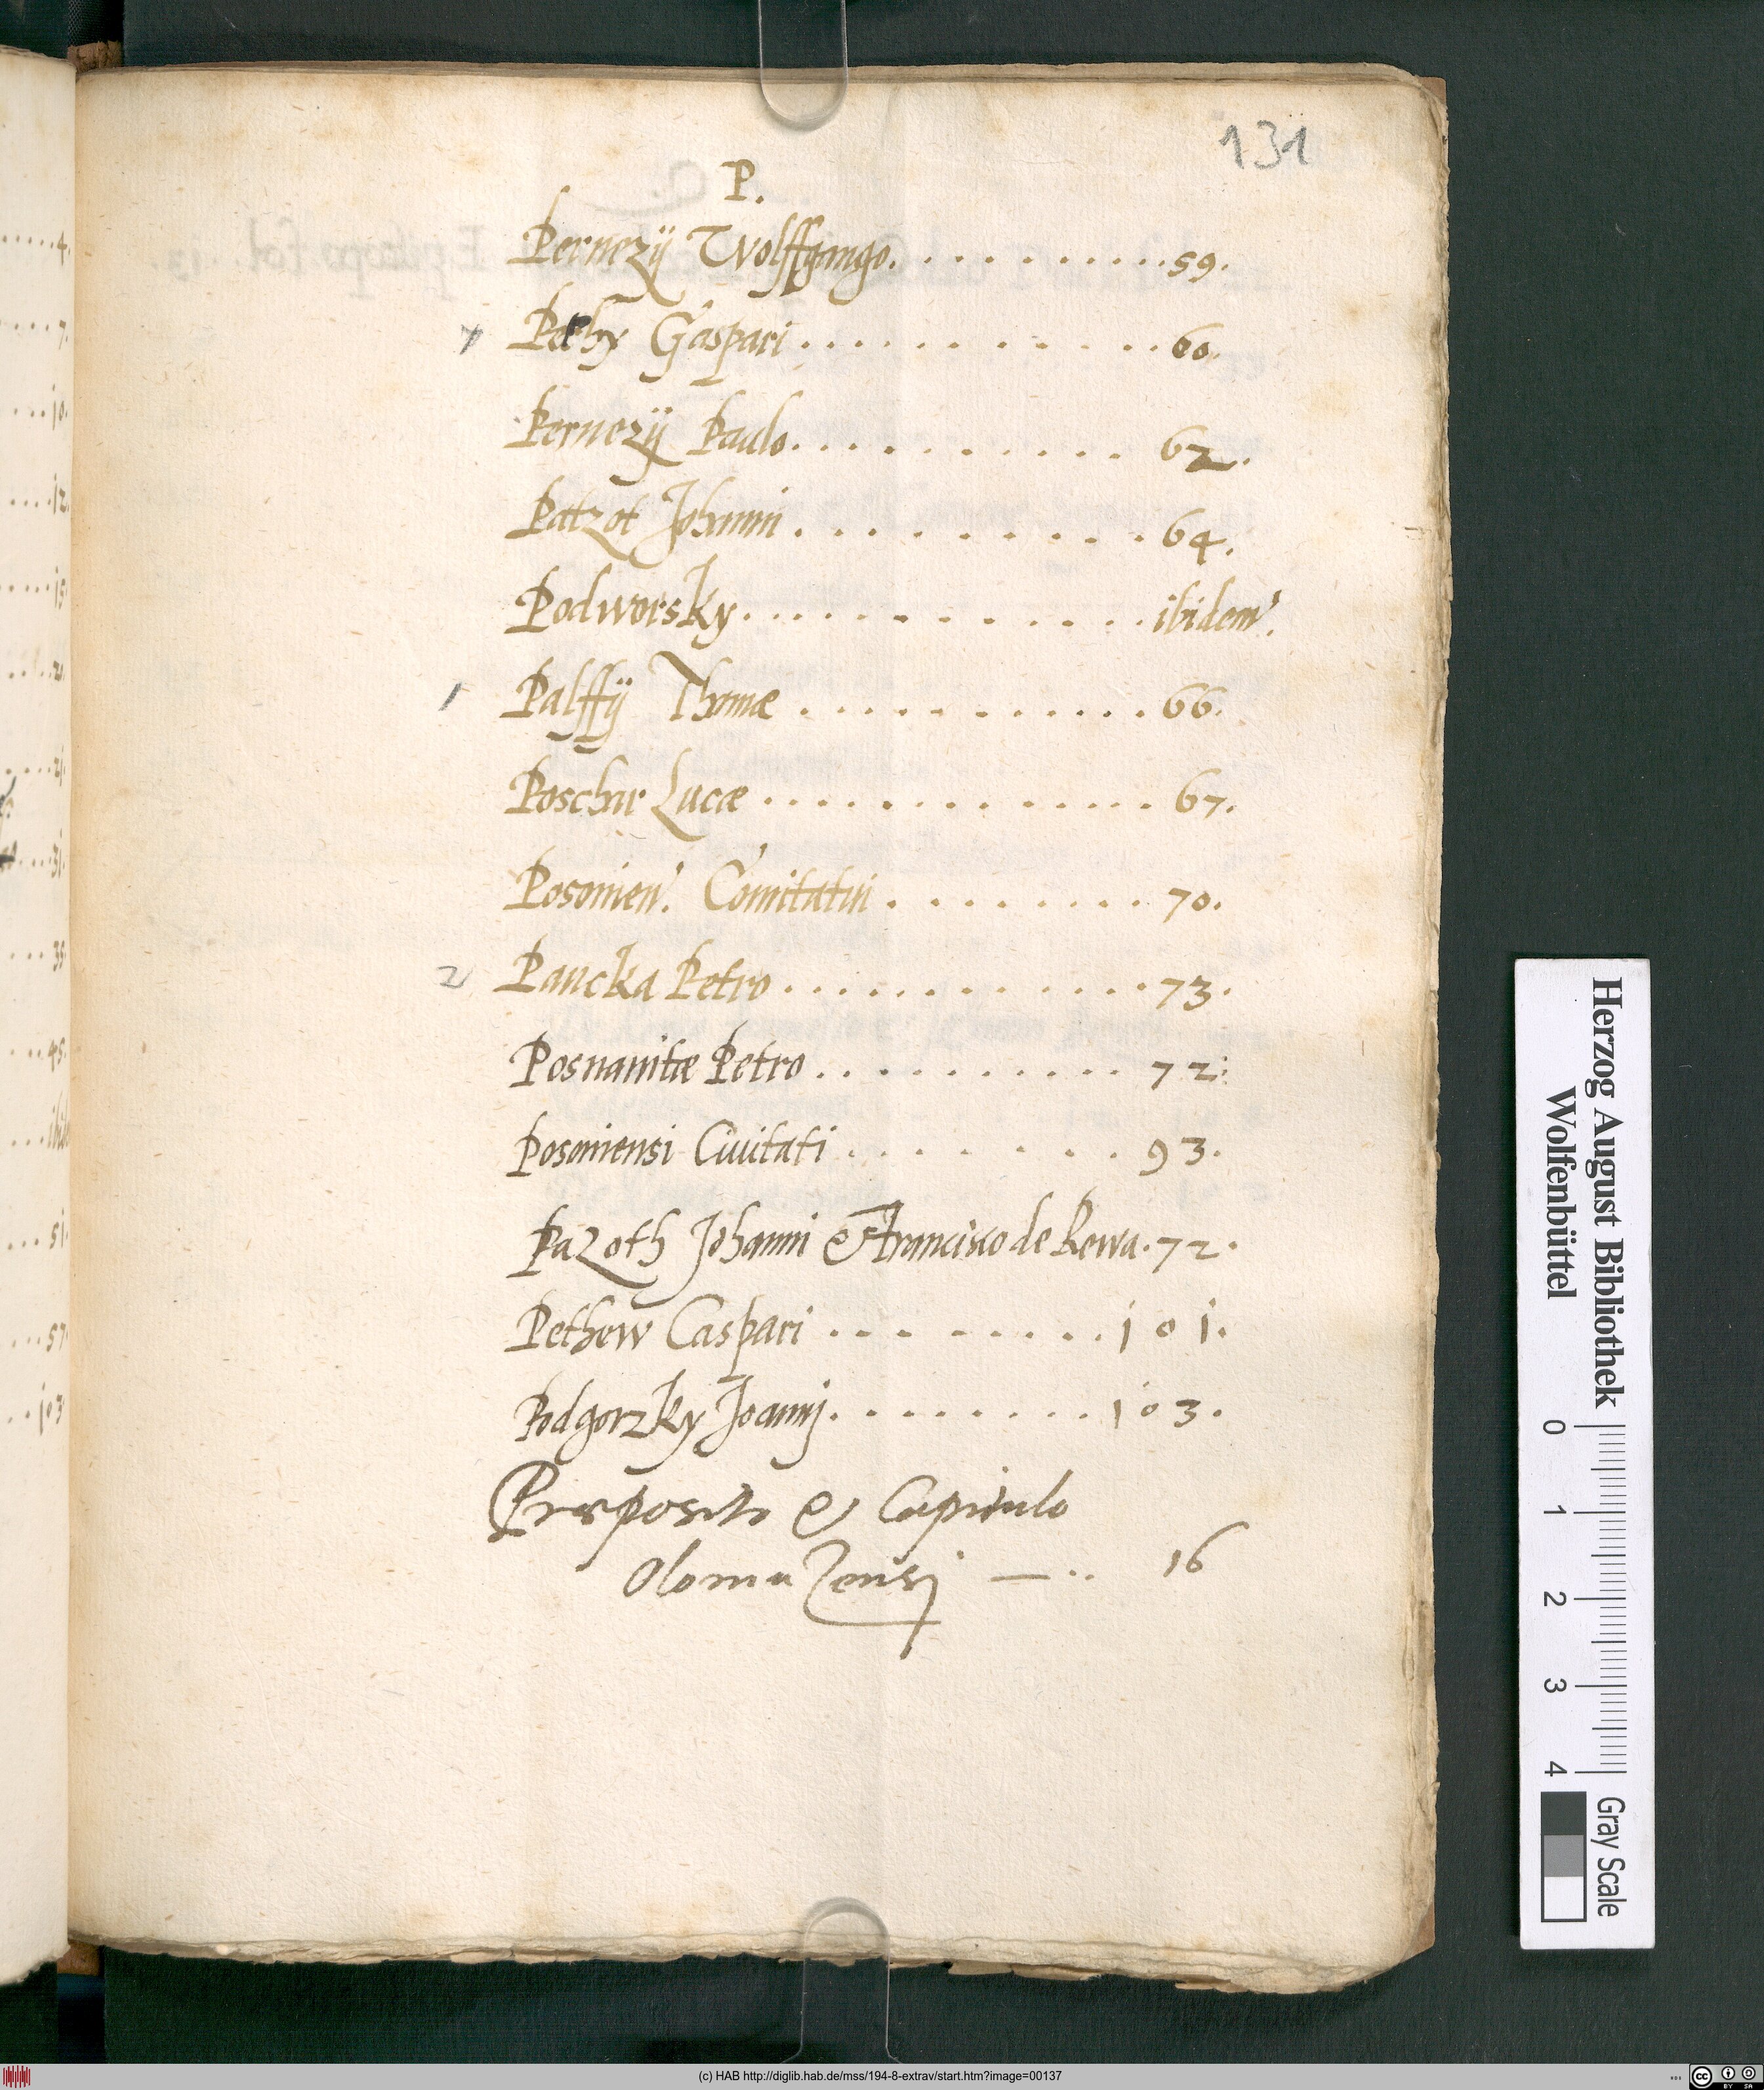 131
P.
Pernezÿ Wolffgango. . . . . . . . . . . 59.
Gaspari . . . . . . . . . . . . 60.
Pernezÿ Paulo. . . . . . . . . . . 62.
Patzot Johanni . . . . . . . . . 64.
Podworsky . . . . . . . . . . . . ibidem.
1 Palffÿ Thomæ . . . . . . . . . . . . 66.
Poschar Lucæ . . . . . . . . . . . . . 67.
Posonien. Comitatui . . . . . . . . . 70.
2 Pancka Petro . . . . . . . . . . . . 73.
Posnanitæ Petro . . . . . . . . . . . 72.
Posoniensi Ciuitati . . . . . . . . 93.
Pazoth Johanni & Francisco de Rewa . 72.
Pethew Caspari . . . . . . . . . 101.
Podgorzky Joanni . . . . . . . . . 103.
Præposito & Capitulo
Olomuzensi — . . 16
4.
7.
10.
12.
15.
21.
31.
35.
45.
51.
57.
103
Herzog August Bibliothek
Wolfenbüttel
0 1 2 3 4
Gray Scale
(c) HAB http://diglib.hab.de/mss/194-8-extrav/start.htm?image=00137